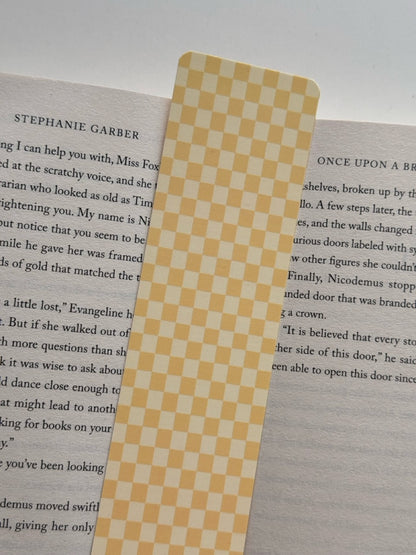 STEPHANIE GARBER
ing I can help you with, Miss Fox
ed at the scratchy voice, and she
rarian who looked as old as Tim
rightening you. My name is Ni
but notice that you seem to be
mile he gave her was framed
ds of gold that matched the t
a little lost,” Evangeline h
t. But if she walked out of
h more questions than sh
k it was wise to ask abou
ld dance close enough to
at might lead to anoth
king for books on your
y.”
e you’ve been looking
odemus moved swiftl
all, giving her only
ONCE UPON A BR
shelves, broken up by th
llo. A few steps later, the
es, and the walls changed
urious doors labeled with sy
w other figures she couldn’t
Finally, Nicodemus stopp
unded door that was branded
g a crown.
“It is believed that every sto
her side of this door,” he said
een able to open this door since